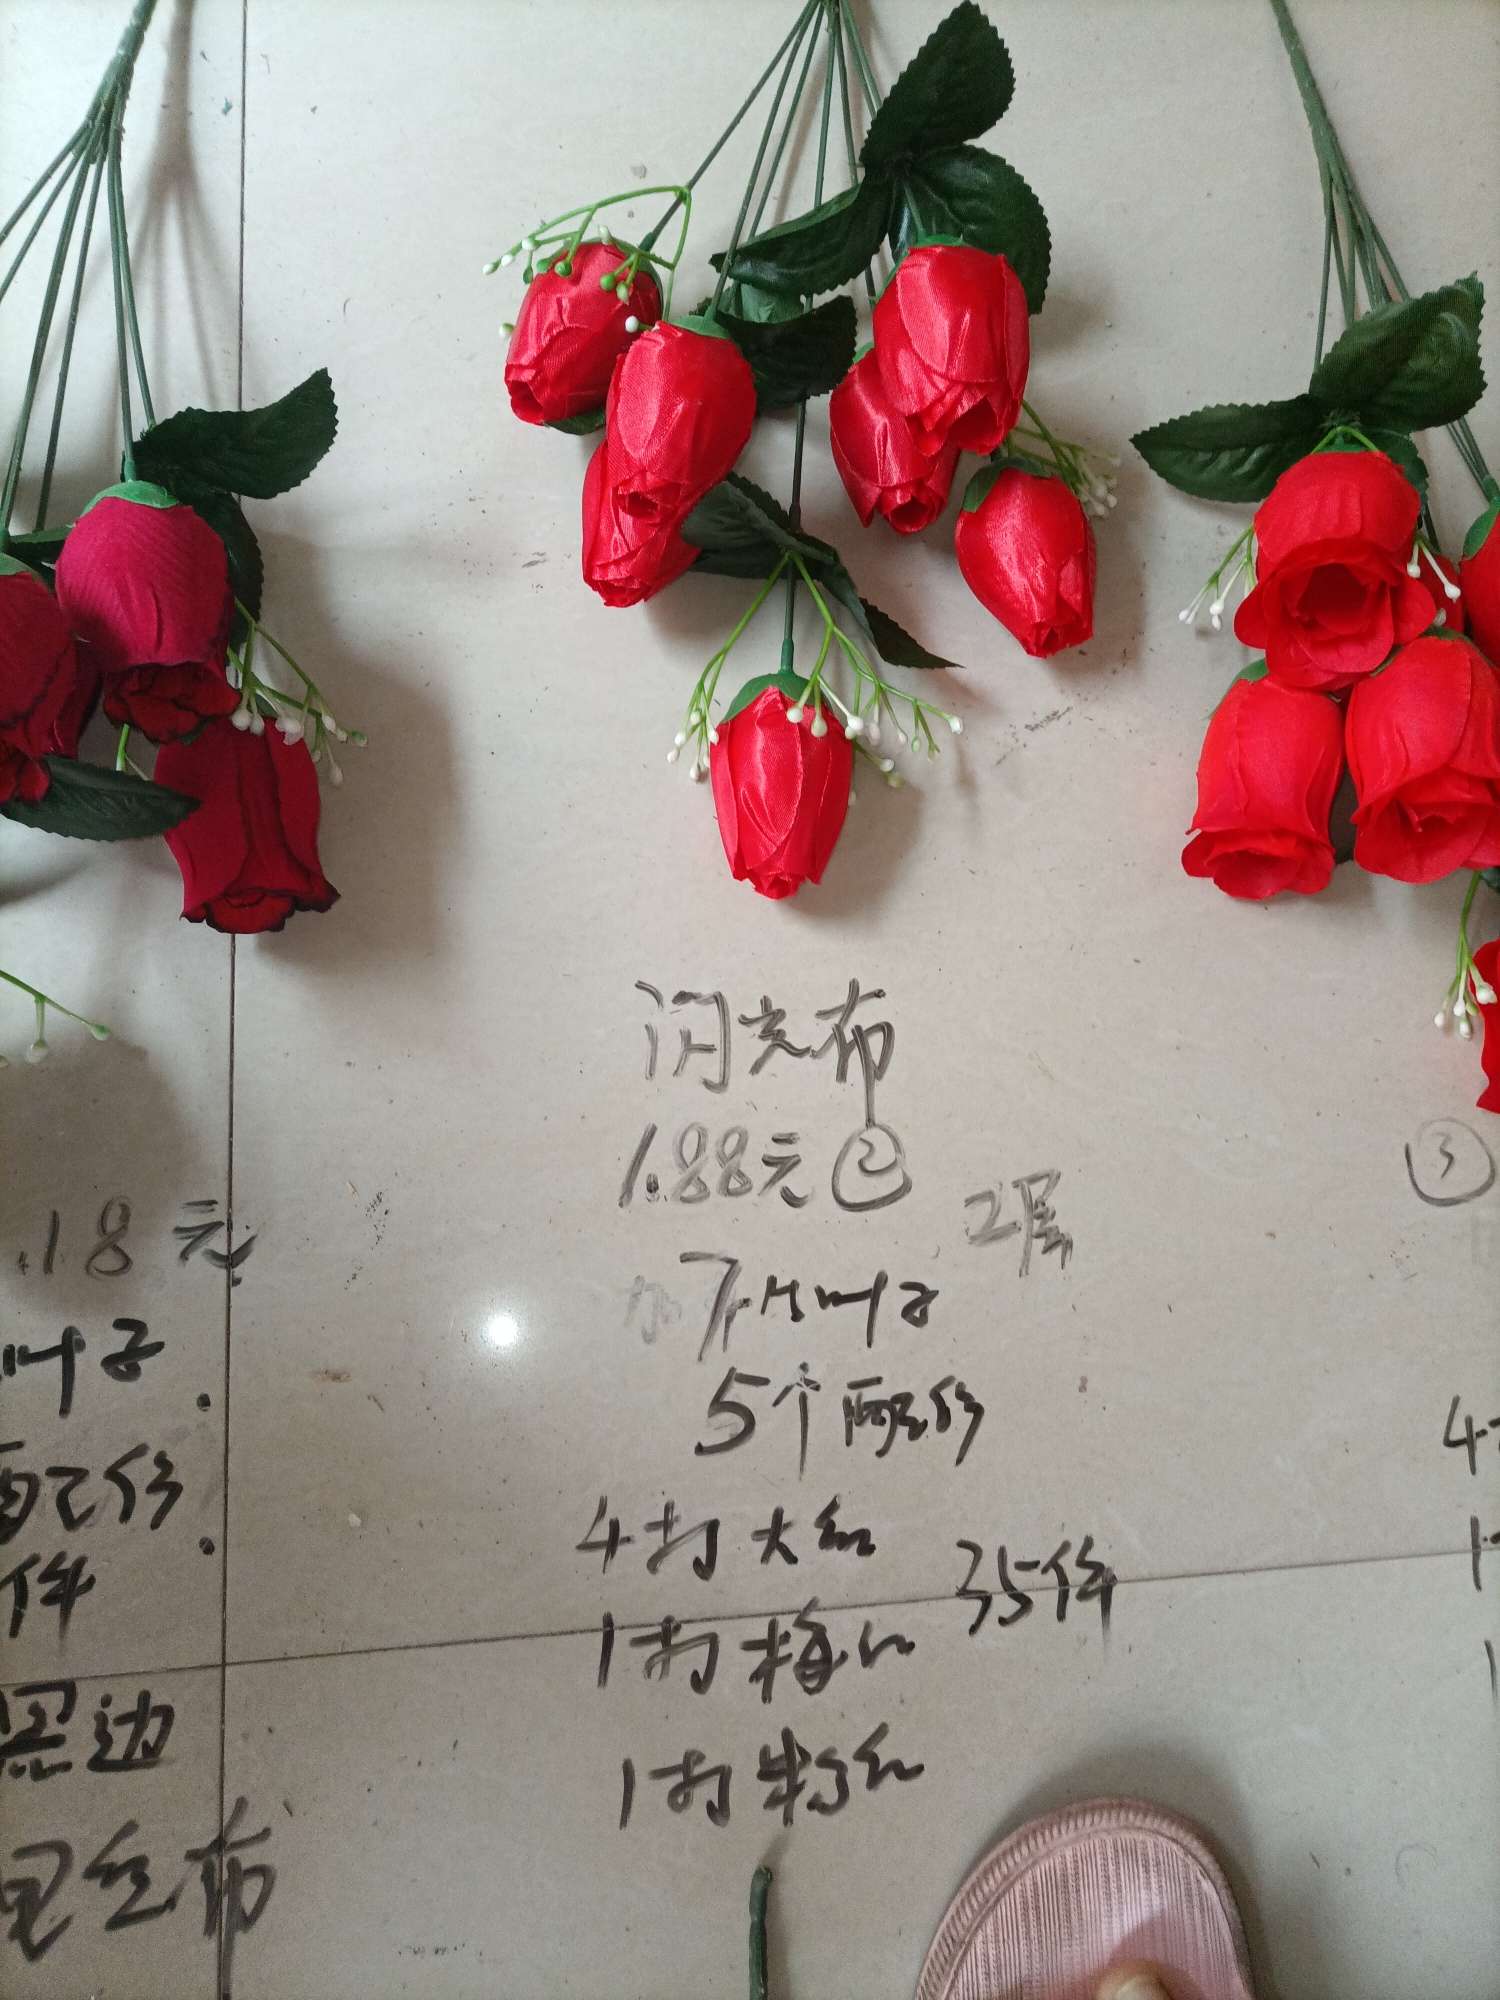 闪光布
1.88元 ②
2层
加 7片叶子
5个配件
4打大红
35件
1打梅红
1打粉红
.18元
叶子.
配件.
件
黑边
色丝布
③
4打
1
1